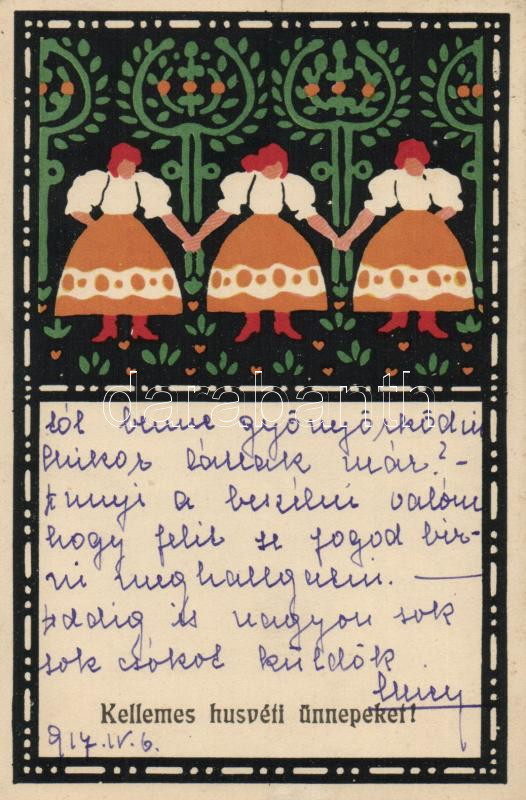 darabanth
ból benne gyönyörködni
Mikor látlak már? -
Annyi a beszélni valóm
hogy felit se fogod bir-
ni meghallgatni. —
Addig is nagyon sok
sok csókot küldök
Kellemes husvéti ünnepeket!
917. IV. 6.